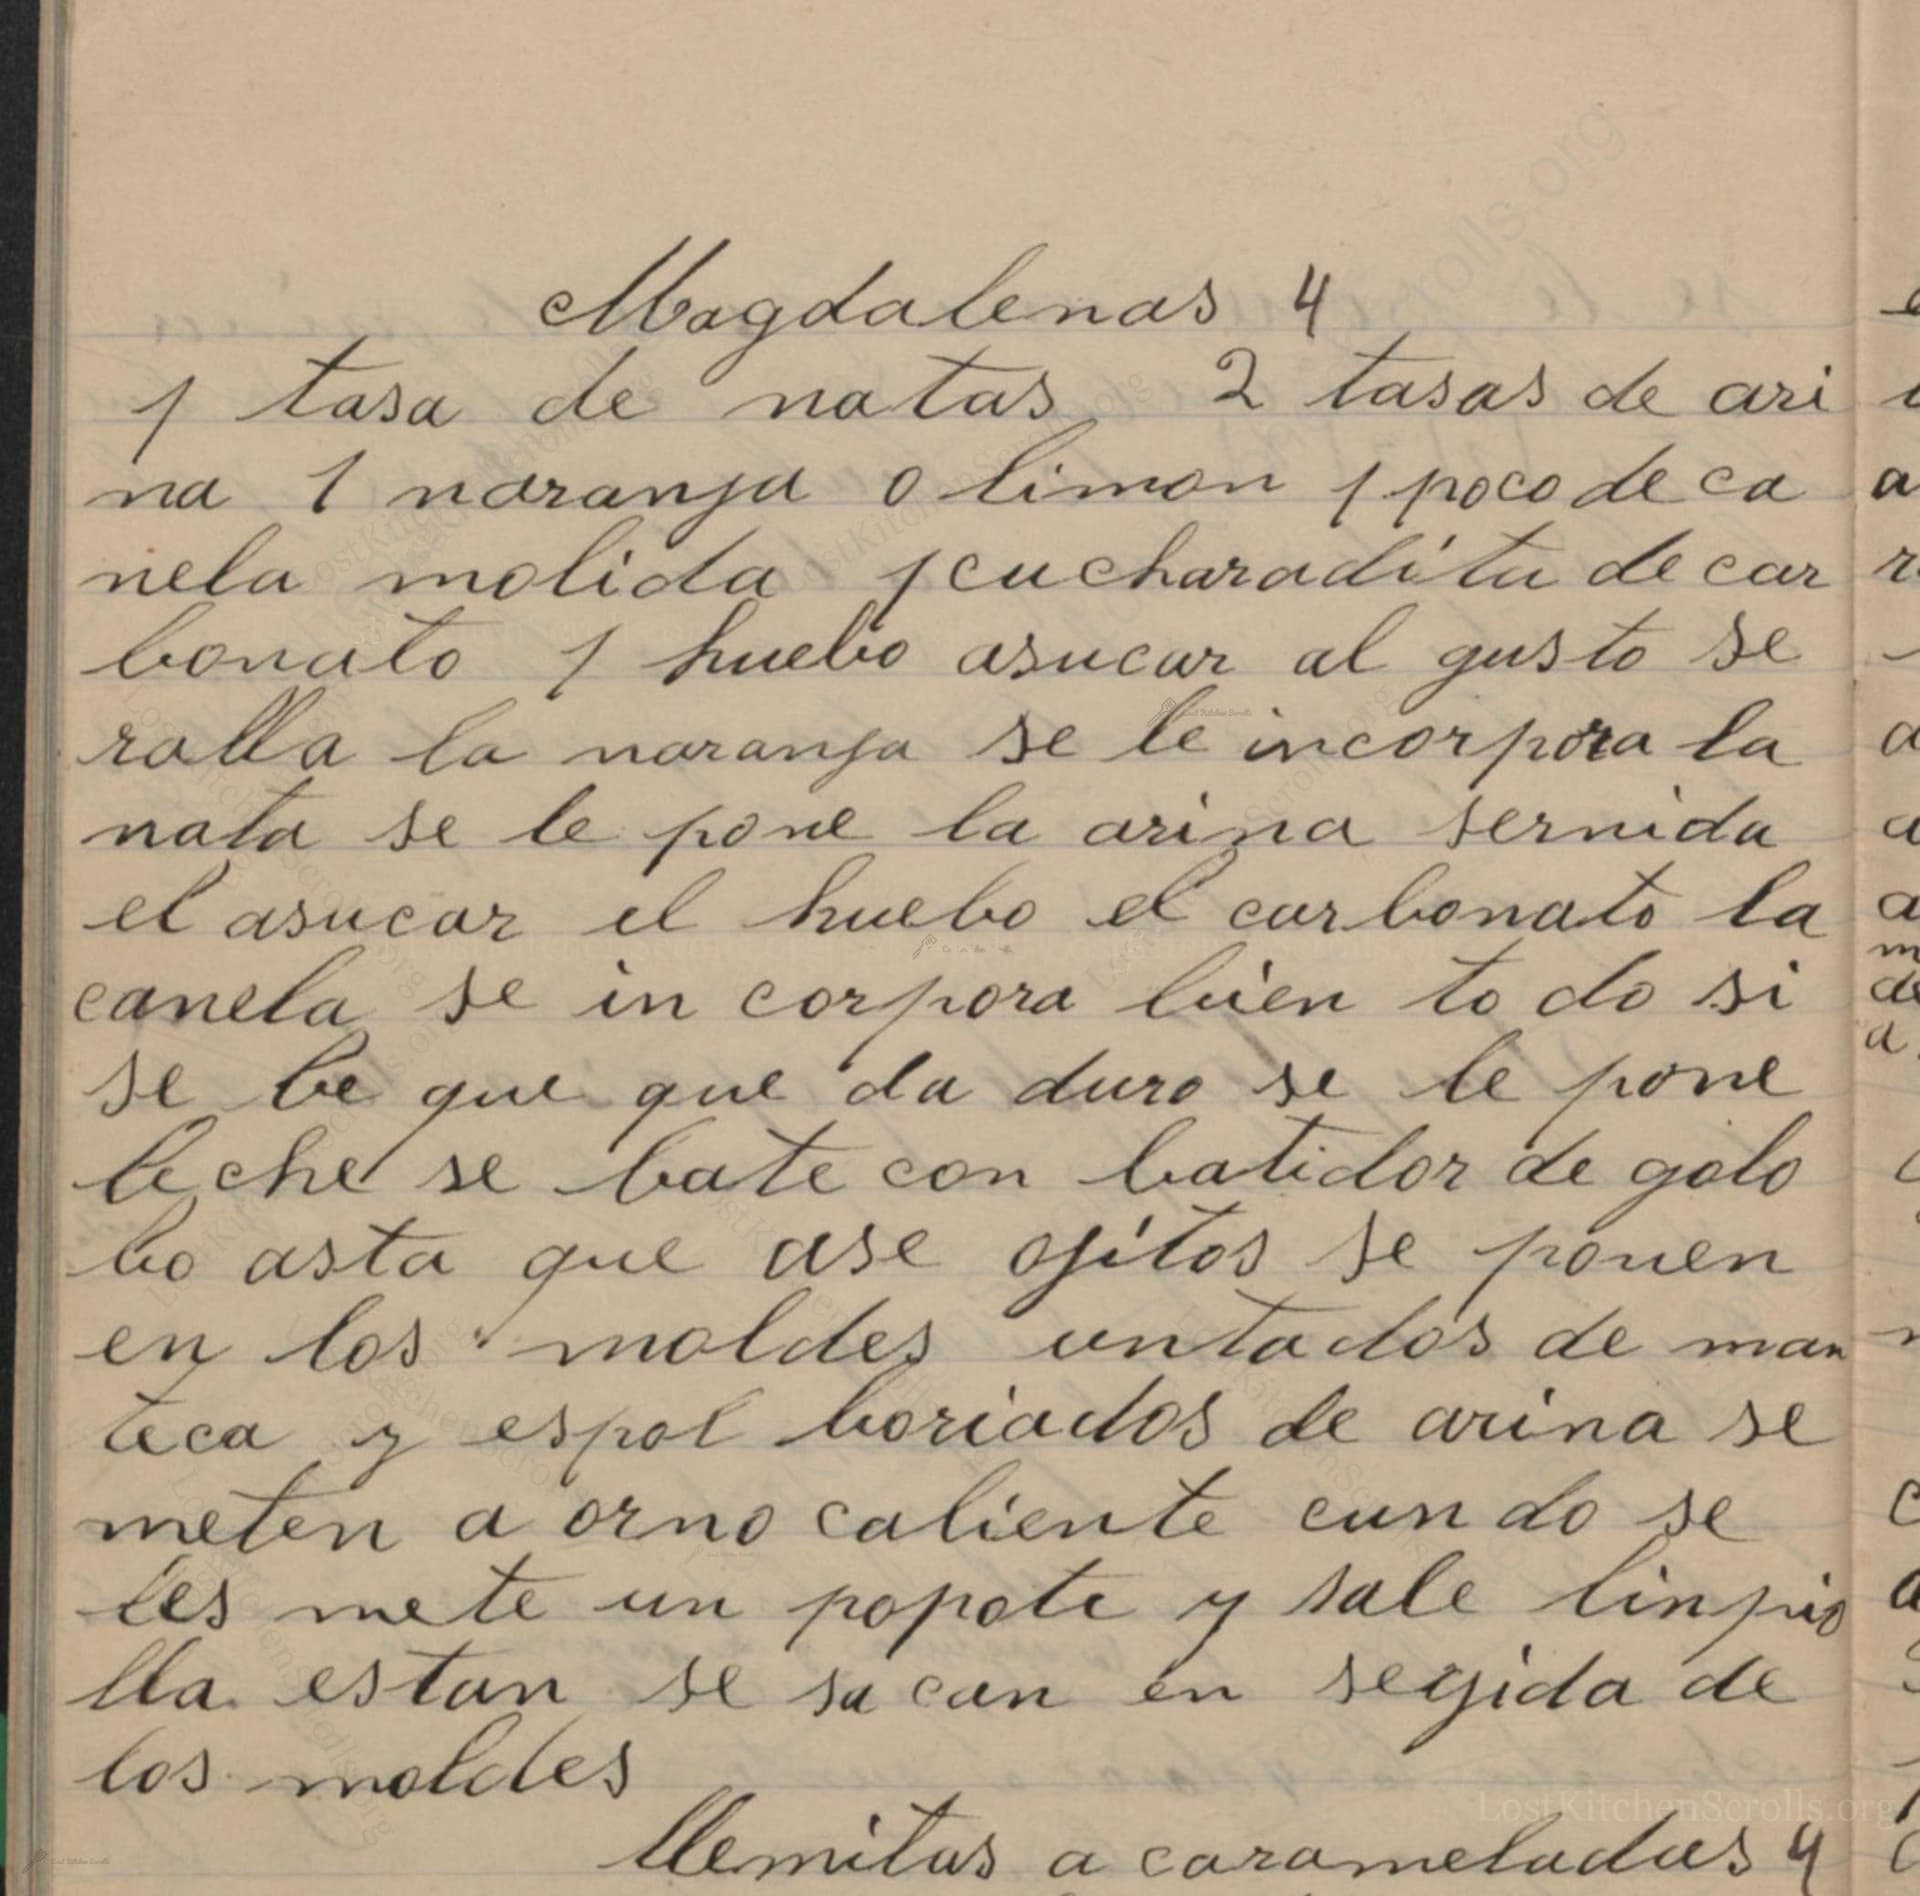 Magdalenas 4
1 tasa de natas 2 tasas de ari
na 1 naranja o limon 1 poco de ca
nela molida 1 cucharadita de car
bonato 1 huebo asucar al gusto se
ralla la naranja se le incorpora la
nata se le pone la arina sernida
el asucar el huebo el carbonato la
canela se in corpora bien to do si
se be que que da duro se le pone
leche se bate con batidor de golo
bo asta que ase ojitos se ponen
en los moldes untados de man
teca y espol boriados de arina se
meten a orno caliente cuando se
les mete un popote y sale linpio
lla estan se sa can en segida de
los moldes
llemitas a carameladas 4
LostKitchenScrolls.org